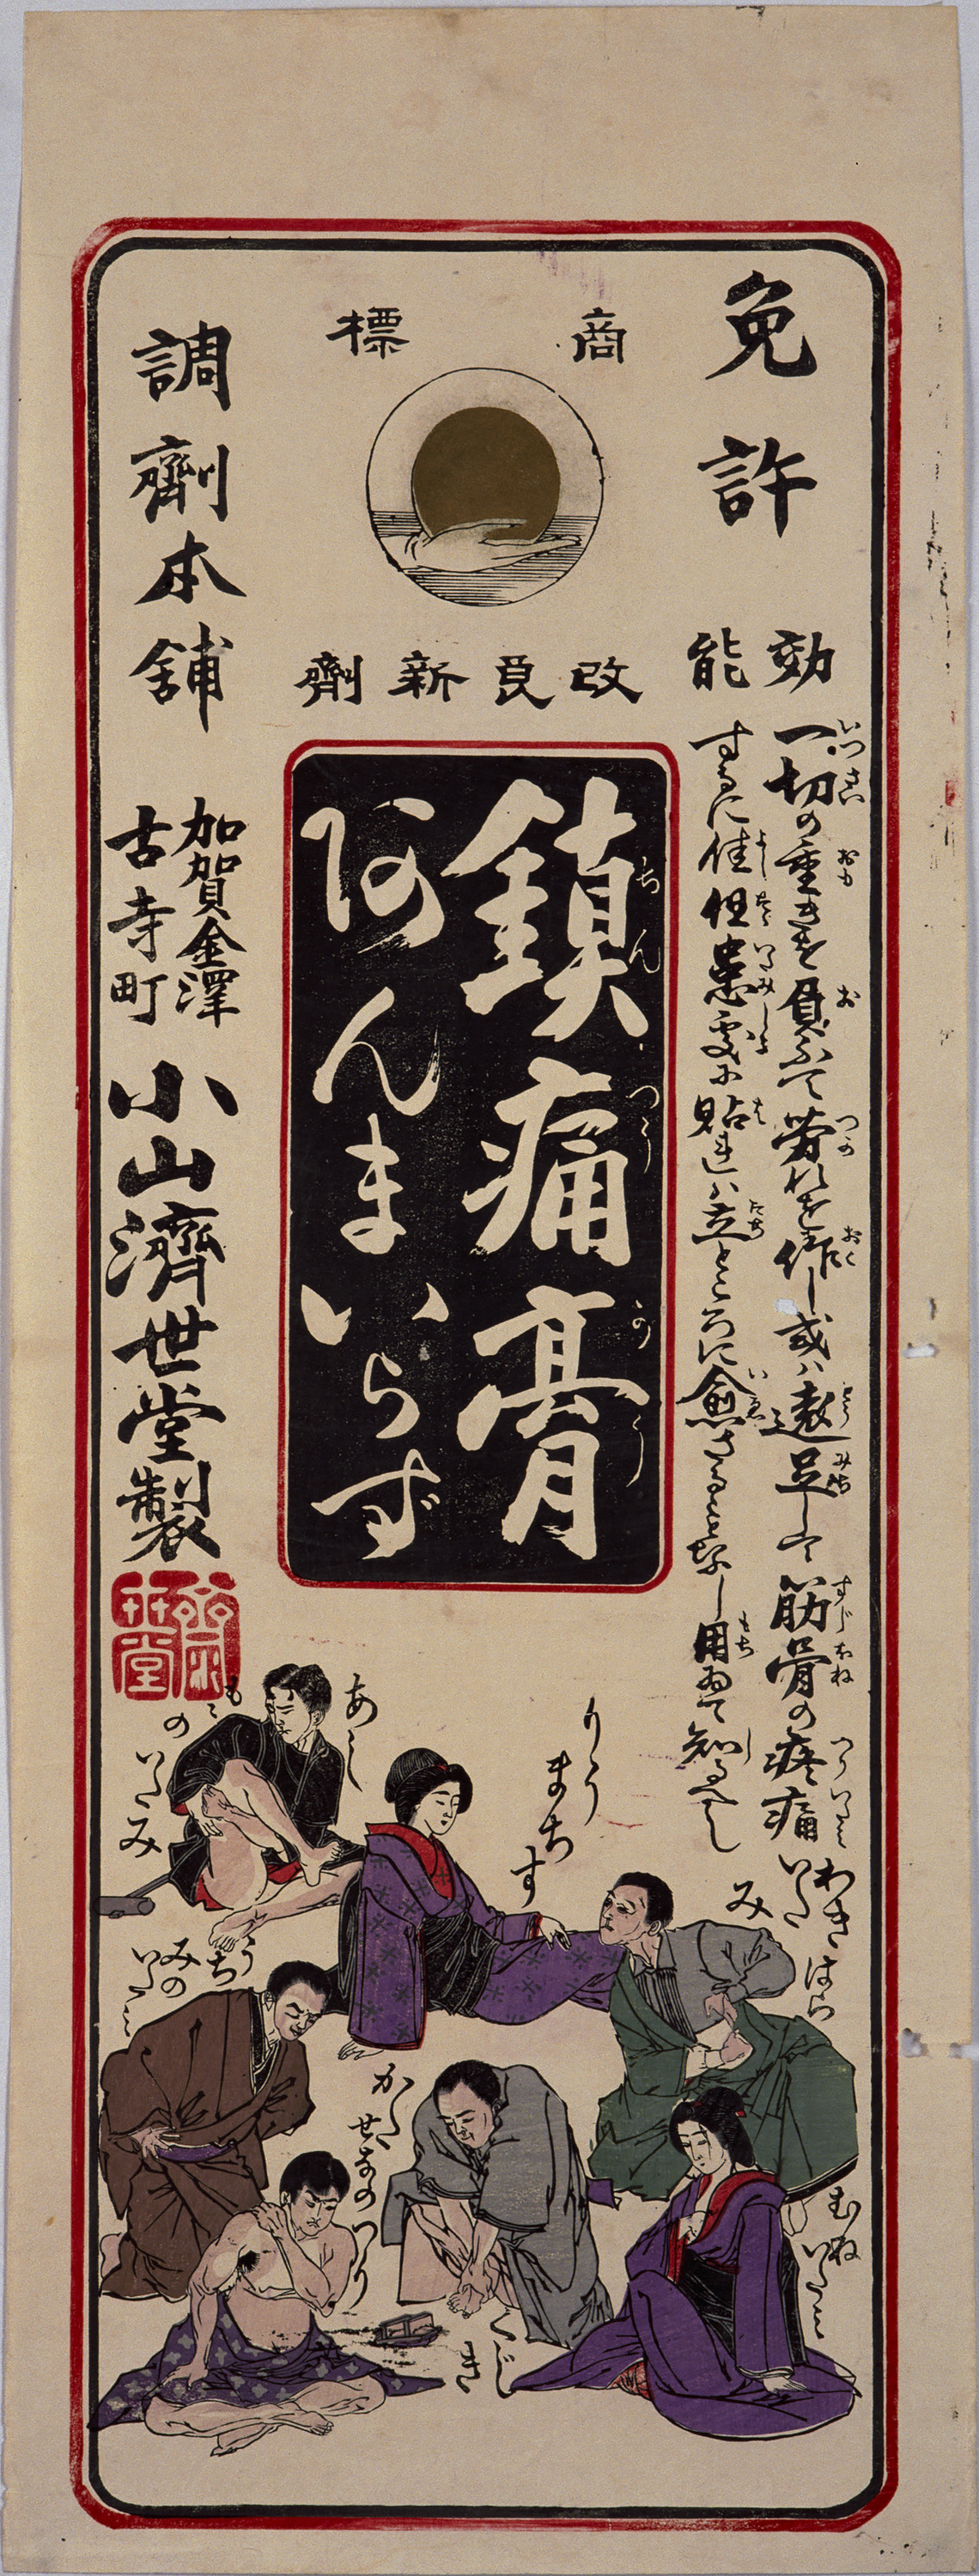 免許
効能
一切の重きを負ふて労れを作し或ハ遠足して筋骨の疼痛
するに佳但患処に貼れハ立ところに愈さること無し用ゐて知るべし
商標
改良新劑
鎮痛膏
ちんつうかう
あんまいらず
調劑本舗
加賀金澤
古寺町
小山濟世堂製
濟世堂
あし
もゝのいたみ
りうまちす
わきはらいたみ
うちみのいたミ
かたせなのつり
くじき
むねいたミ